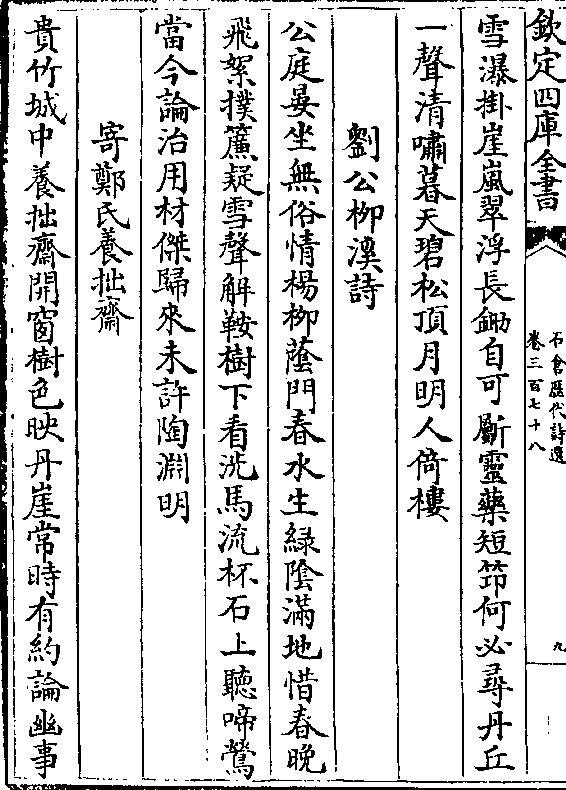 欽定四庫全書
石倉歷代詩選
卷三百七十八
九
雪瀑掛崖嵐翠浮長鋤自可斸靈藥短笻何必尋丹丘
一聲清嘯暮天碧松頂月明人倚樓
劉公柳溪詩
公庭晏坐無俗情楊柳蔭門春水生綠陰滿地惜春晚
飛絮撲簾疑雪聲解鞍樹下看洗馬流杯石上聽啼鶯
當今論治用材傑歸來未許陶淵明
寄鄭氏養拙齋
貴竹城中養拙齋開窗樹色映丹崖常時有約論幽事